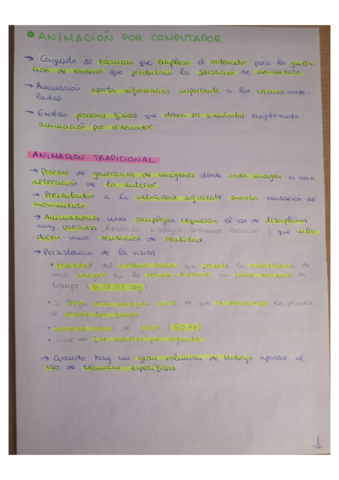 ANIMACIÓN POR COMPUTADOR
→ Conjunto de técnicas que emplean el ordenador para la gener-
ación de escenas que produzcan la sensación de movimiento.
→ Animación aporta información importante a las escenas mode-
ladas
→ Existen procesos físicos que deben ser simulados empleando
animación por ordenador.
ANIMACION TRADICIONAL
→ Proceso de generación de imágenes donde cada imagen es una
alteración de la anterior.
→ Presentadas a la velocidad suficiente simula sensación de
movimiento.
→ Animaciones más complejas requieren el uso de disciplinas
muy variadas (Robótica, biología, ) que
una sensación de realidad.
→ Persistencia de la visión:
• Propiedad del que la
una imagen en la retina durante un breve instante de
tiempo
• Si llega otra imagen antes de que la primera,
el
•
• Cine → 24 por segundo.
→ Cuando hay un gran volumen de trabajo aparece el
uso de técnicas específicas
1